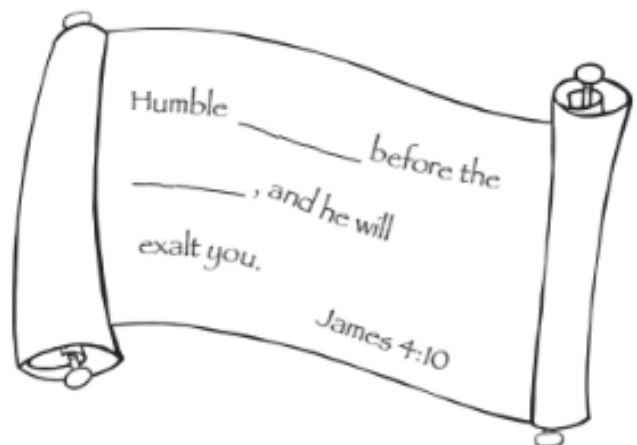 Humble ________ before the
________, and he will
exalt you.
James 4:10